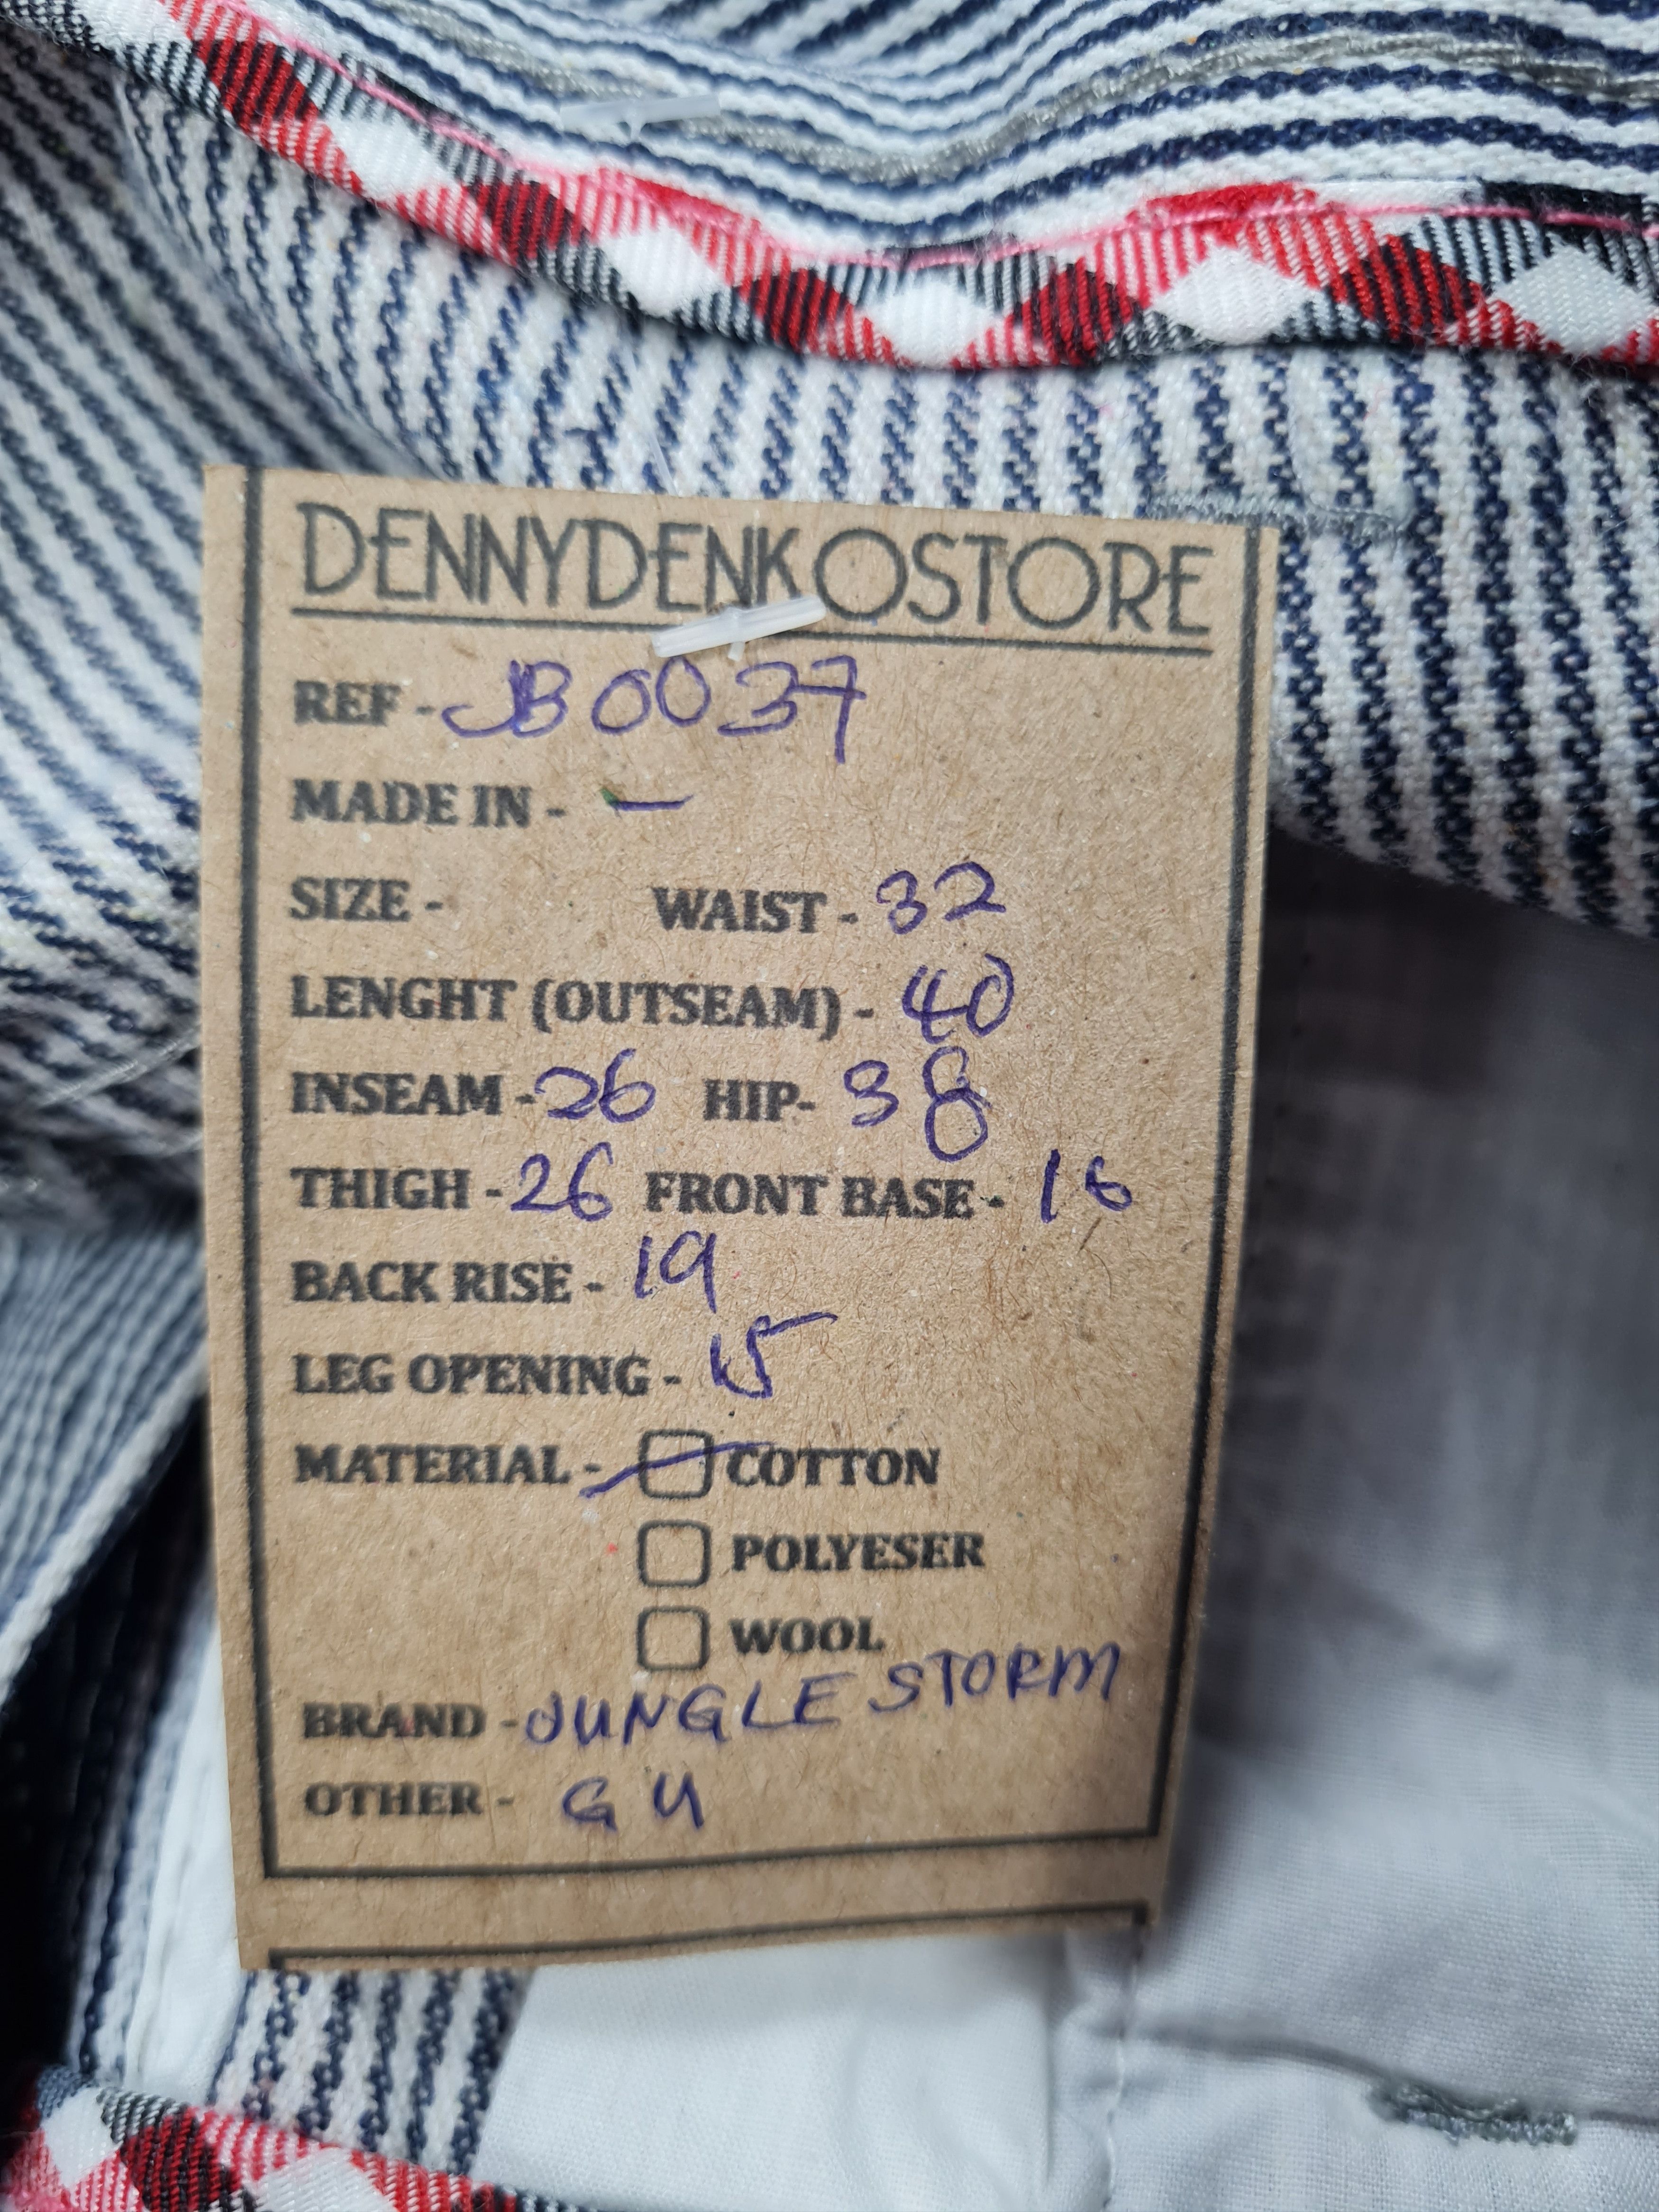 DENNYDENKOSTORE
REF - JB0037
MADE IN - —
SIZE - WAIST - 32
LENGHT (OUTSEAM) - 40
INSEAM - 26 HIP- 38
THIGH - 26 FRONT BASE - 16
BACK RISE - 19
LEG OPENING - 15
MATERIAL - COTTON
POLYESER
WOOL
BRAND - JUNGLE STORM
OTHER - GU